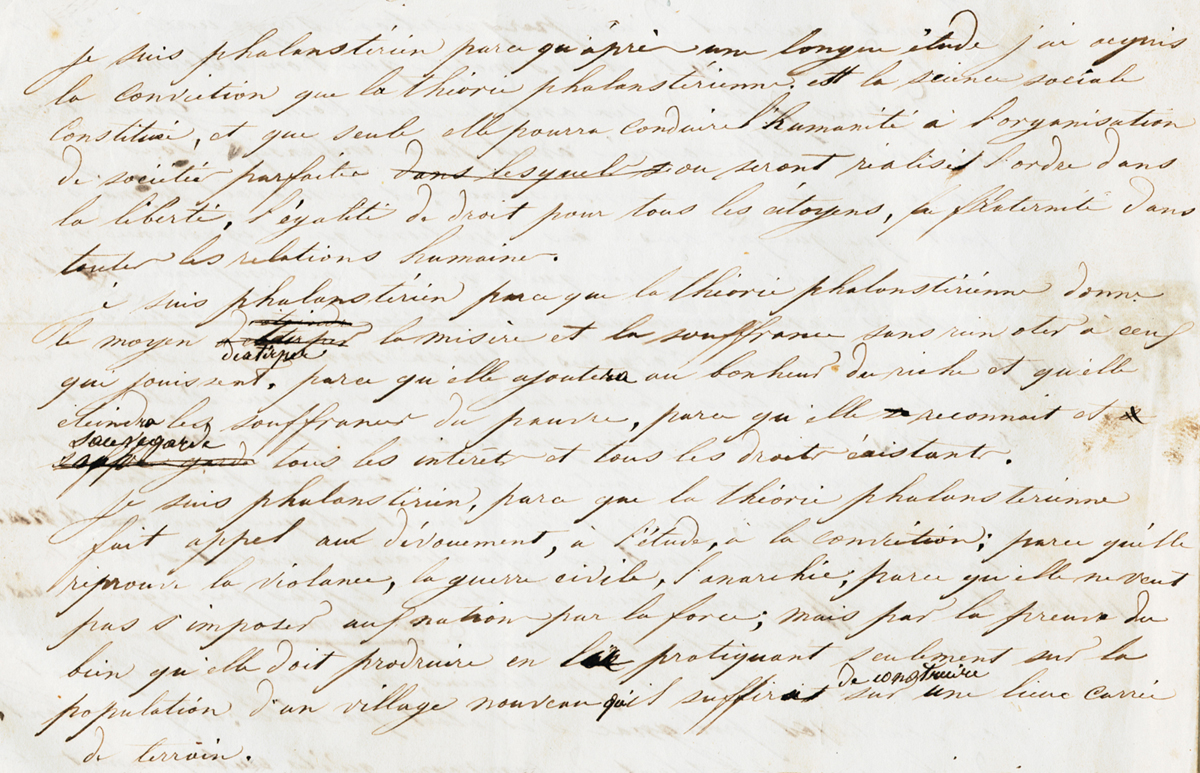 Je suis phalanstérien parce qu'àprè une longue étude j'ai acquis
la conviction que la théorie phalanstérienne est la science sociale
constituée, et que seule elle pourra conduire l'humanité à l'organisation
de societés parfaites dans lesquels ou seront réalisés l'ordre dans
la liberté, l'égalité de droit pour tous les citoyens, la fraternité dans
toutes les relations humaines.
Je suis phalanstérien parce que la théorie phalanstérienne donne
le moyen la misère et la souffrance sans rien oter à ceux
d'extirper
qui jouissent, parce qu'elle ajoutera au bonheur du riche et qu'elle
éteindra les souffrances du pauvre, parce qu'elle reconnait et
sauvegarde
sauve garde tous les interets et tous les droits éxistants.
Je suis phalanstérien, parce que la théorie phalanstérienne
fait appel aux dévouement, à l'étude, à la conviction; parce qu'elle
reprouve la violance, la guerre civile, l'anarchie; parce qu'elle ne veut
pas s'imposer aux nation par la force; mais par la preuve du
bien qu'elle doit prodruire en pratiquant seulement sur la
de construire
population d'un village nouveau qu'il suffirait sur une lieue carrée
de terrain.